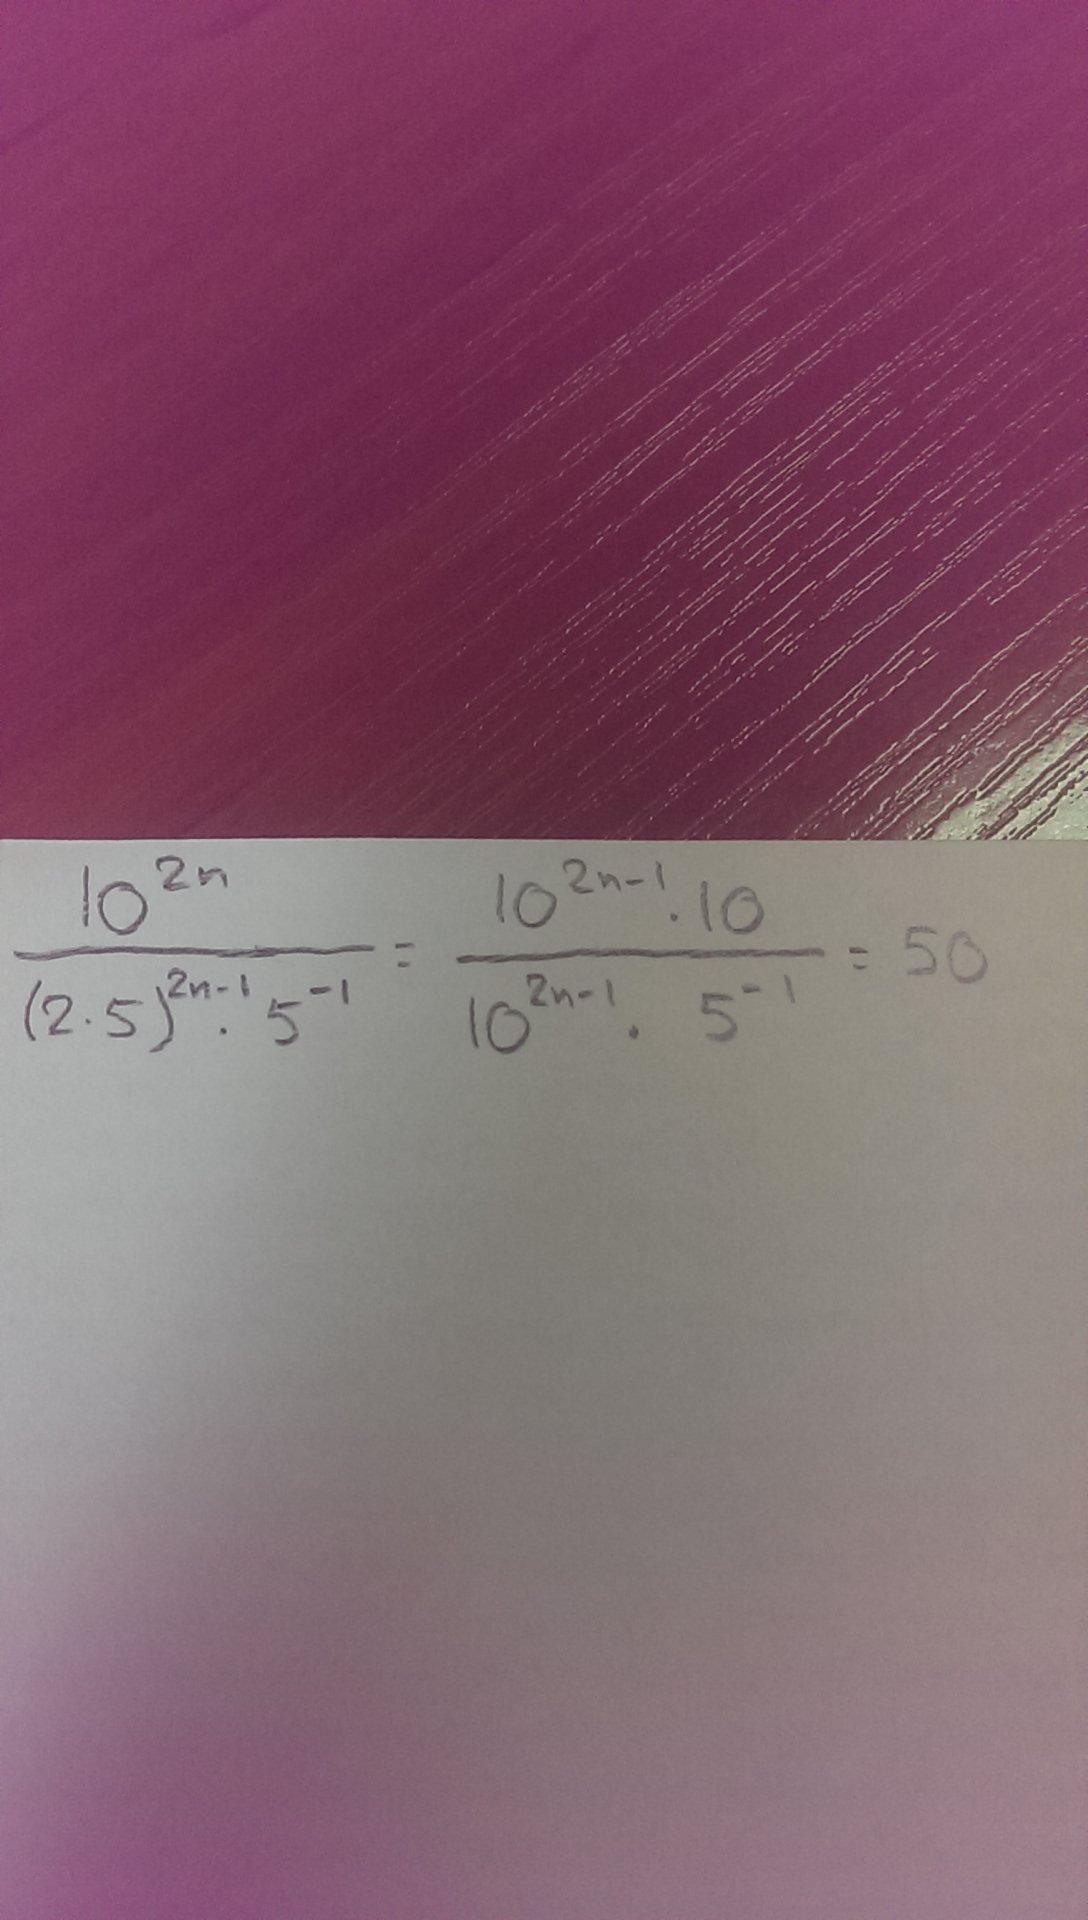 10^{2n} / ((2·5)^{2n-1} · 5^{-1}) = (10^{2n-1} · 10) / (10^{2n-1} · 5^{-1}) = 50